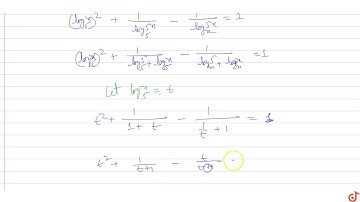 (log₅x)² + 1/log₅5x − 1/logₓ5x = 1
(log₅x)² + 1/(log₅5 + log₅x) − 1/(logₓ5 + logₓx) = 1
let log₅x = t
t² + 1/(1 + t) − 1/(1/t + 1) = 1
t² + 1/(t+1) − t/(t+1)